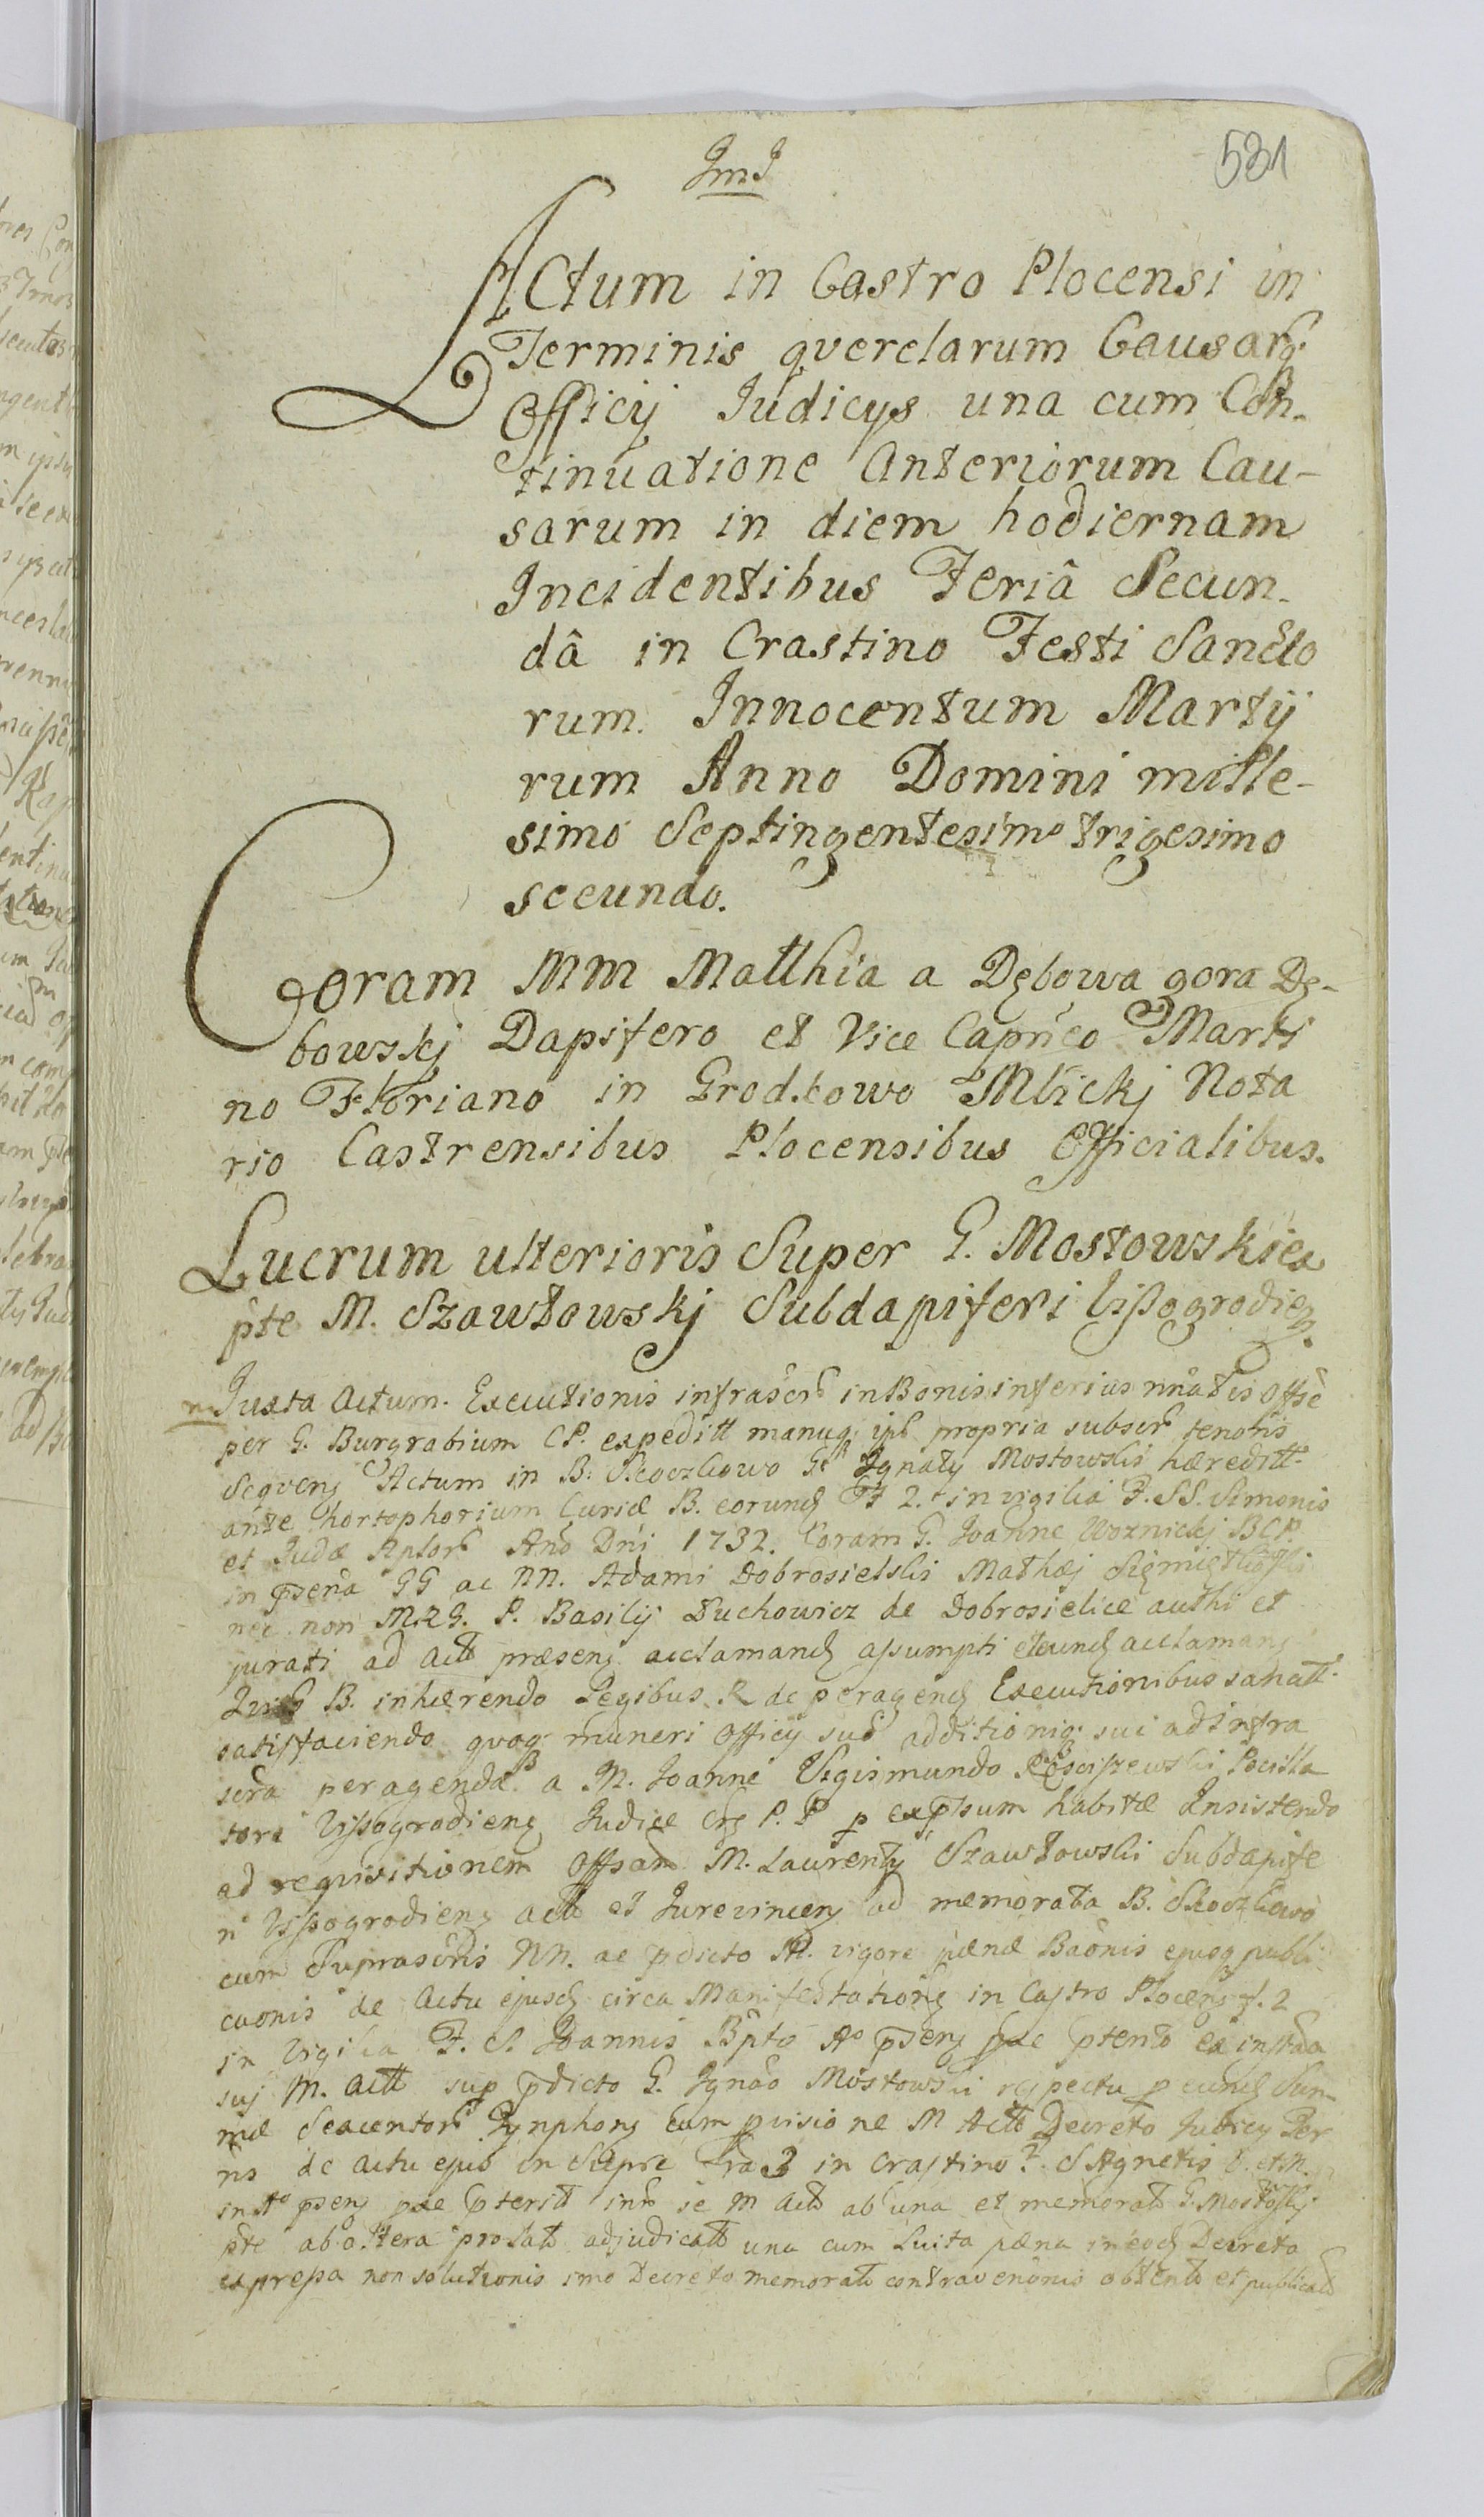 JmJ
531
ACtum in Castro Plocensi in
Terminis qverelarum Causarq.
Officij Judicijs una cum Con-
tinuatione Anteriorum Cau-
sarum in diem hodiernam
Incidentibus Feriâ Secun-
dâ in Crastino Festi Sancto
rum Innocentum Martÿ
rum Anno Domini mille-
simo Septingentesimo trigesimo
secundo.
Coram MM Matthia a Dębowa gora Dę-
bowskj Dapifero et Vice Capneo Marti
no Floriano in Grodkowo Mlickj Nota
rio Castrensibus Plocensibus Officialibus.
Lucrum ulterioris Super G. Mostowskie
pte M. Szawłowskj Subdapiferi Vissogrodien.
Juxta Actum Executionis infrascr in Bonis inferius nnatis Offse
per G. Burgrabium CP. expeditt manuq ips propria subscr tenoris
Seqvens Actum in B. Skoczkowo Gr Ignaty Mostowski hæreditt
ante hortophorium Curiæ B. eorund F 2. in vigilia F. SS. Simonis
et Judæ Aplor Ano Dni 1732. Coram G. Joanne Woznickj BCP.
in psena GG ac NN. Adami Dobrosielski Mathæj
nec non MRG. P. Basilij Duchowicz de Dobrosielice authi et
jurati ad Act præsens acclamand assumpti eund acclamans
B. inhærendo Legibus R de peragend Executionibus sanatt
satisfaciendo quoq muneri Officij sui additioniq sui ad infra
scra peragenda a M. Joanne Sigismundo Rosciszewski Pocilla
tore Vissogrodiens Judice P. P p expssum habitæ Insistendo
ad requisitionem Offsam M. Laurenty Szawłowski Subdapife
ri Vissogrodiens act et Jurevincens ad memorata B. Skoczkowo
cum Suprascris NN. ac pdicto M. vigore pænæ Baonis ejusq publi
caonis de Actu ejusd circa Manifestations in Castro Plocens F. 2
in Vigilia F. S. Joannis Bpto Ao psens ptento ex insta
suj M. Act sup pdicto G. Ignao Mostowski respectu p eund Sum-
mæ Symphons cum pvisione M Act Decreto Judicy Ter
ris de actu ejus in Sierpc Fra 3 in Crastino F. S Agnetis V. et M.
in Ao psens ptersit int se M Act ab una et memorat G. Mostowskj
pte ab altera prolat adjudicatt una cum Luita pæna in eod Decreto
expressa non solutionis imo Decreto memorato contravenonis obtent et publicatt